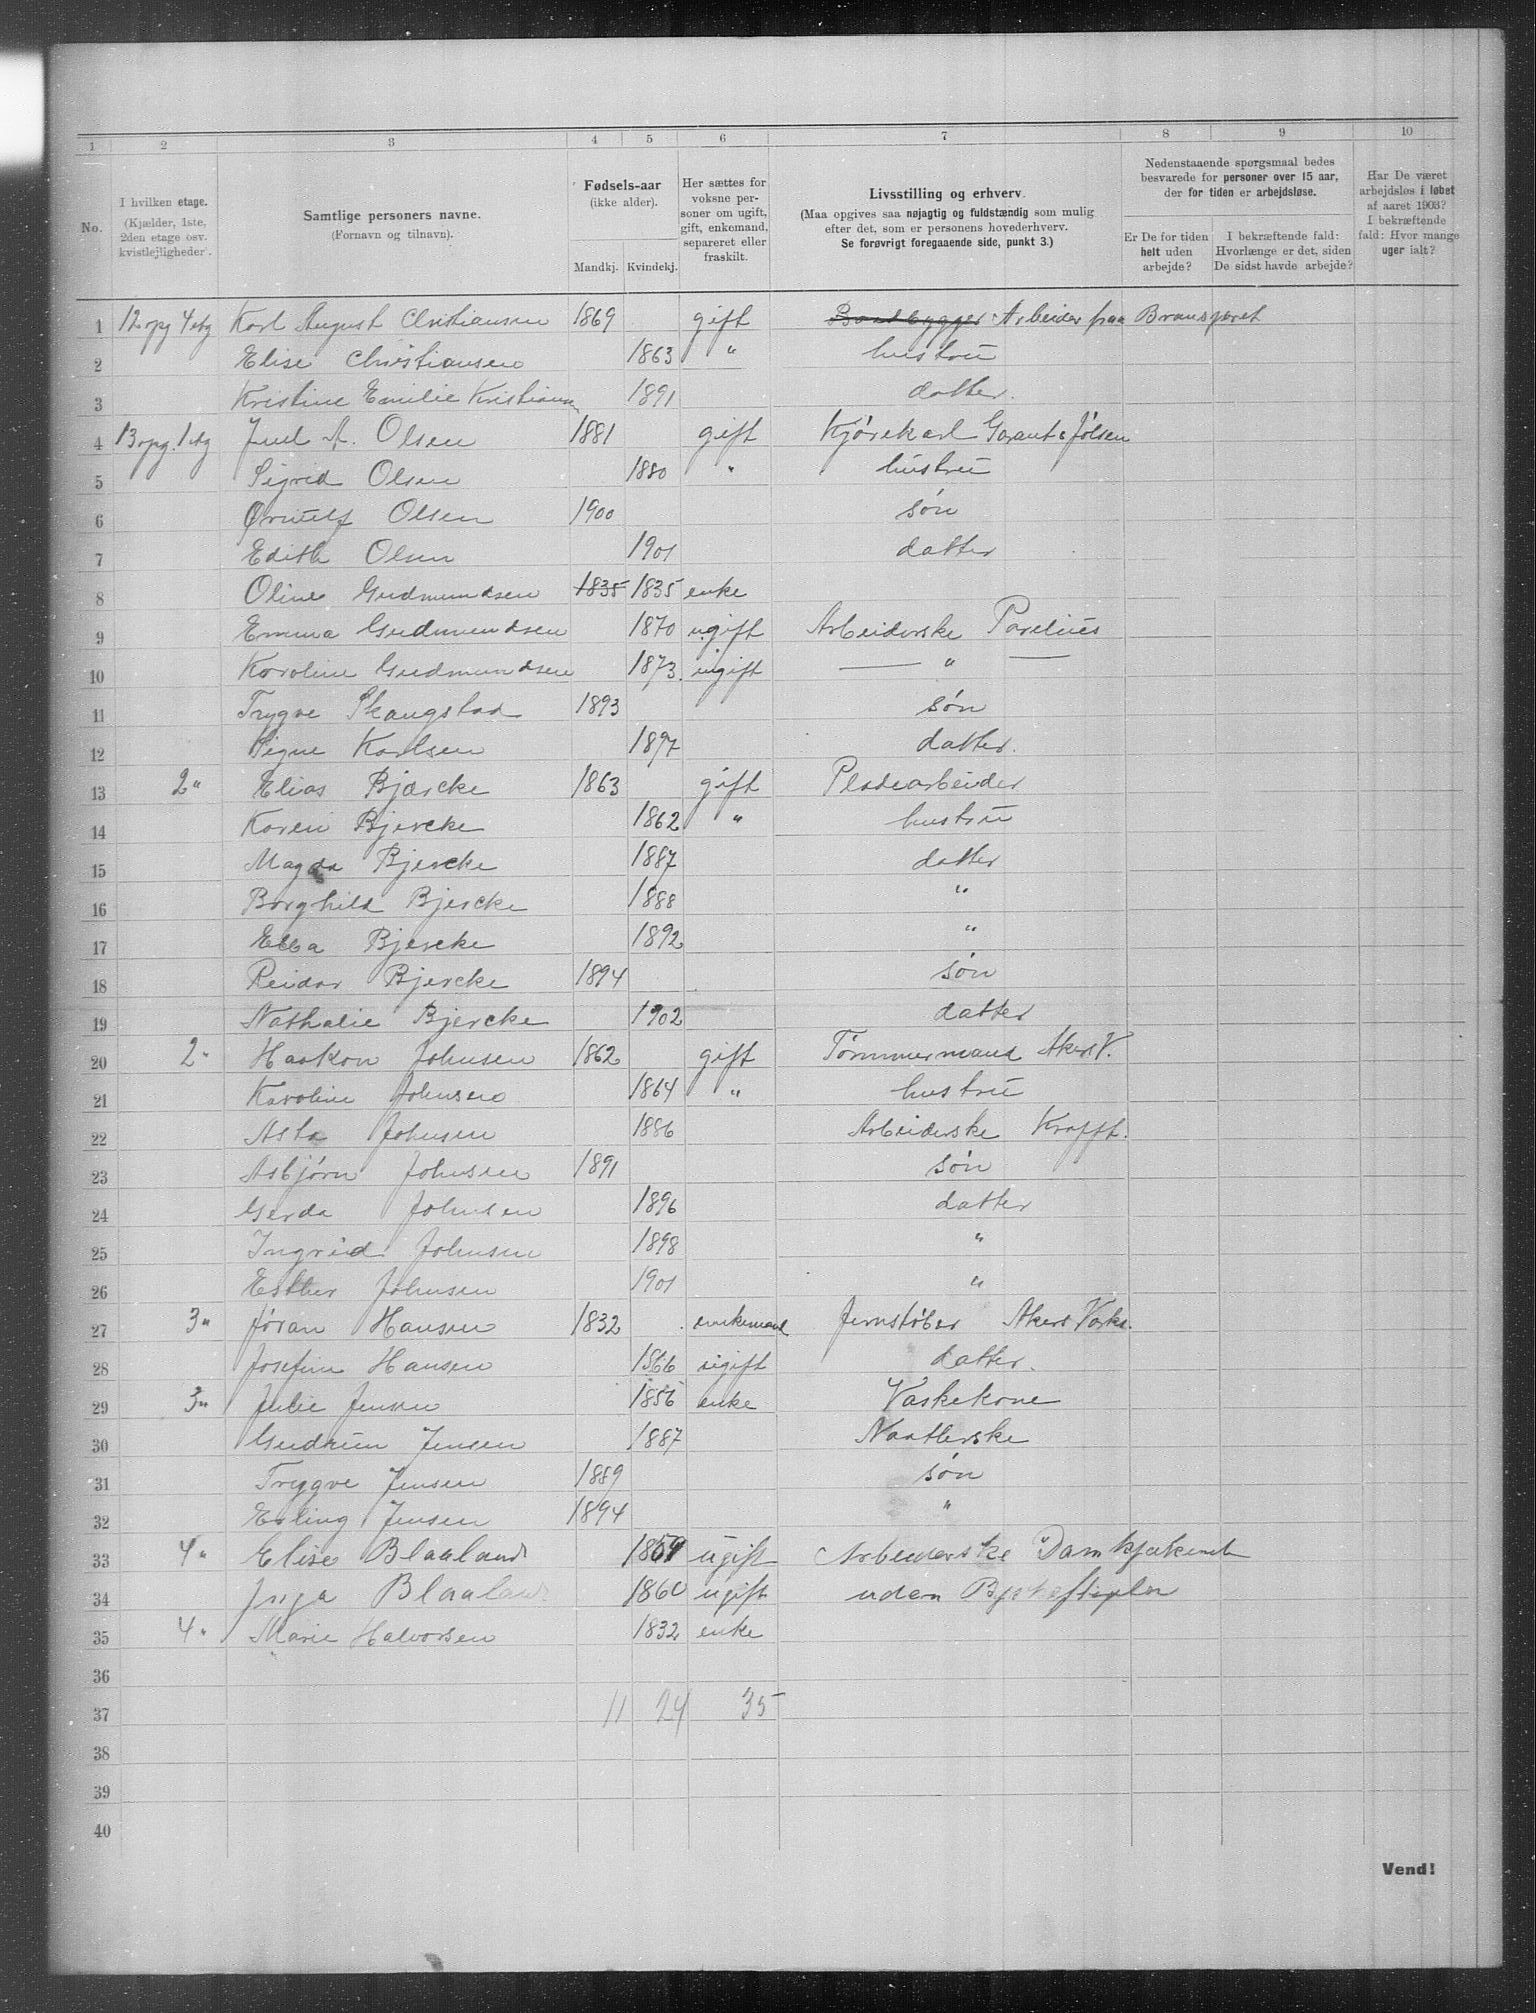 1 2 3 4 5 6 7 8 9 10
No.
I hvilken etage.
(Kjælder, 1ste,
2den etage osv.
kvistlejligheder.
Samtlige personers navne.
(Fornavn og tilnavn).
Fødsels-aar
(ikke alder).
Mandkj. Kvindekj.
Her sættes for
voksne per-
soner om ugift,
gift, enkemand,
separeret eller
fraskilt.
Livsstilling og erhverv.
(Maa opgives saa nøjagtig og fuldstændig som mulig
efter det, som er personens hovederhverv.
Se forøvrigt foregaaende side, punkt 3.)
Nedenstaaende spørgsmaal bedes
besvarede for personer over 15 aar,
der for tiden er arbejdsløse.
Er De for tiden
helt uden
arbejde?
I bekræftende fald:
Hvorlænge er det, siden
De sidst havde arbejde?
Har De været
arbejdsløs i løbet
af aaret 1903?
I bekræftende
fald: Hvor mange
uger ialt?
1 12 opg 4 etg Karl August Christiansen 1869 gift Baadbygger Arbeider paa
2 Elise Christiansen 1863 " hustru
3 Kristine Emilie Kristiansen 1891 datter.
4 13 opg. 1 etg Juul A. Olsen 1881 gift Kjørekarl
5 Sigrid Olsen 1880 " hustru
6 Ørnulf Olsen 1900 søn
7 Edith Olsen 1901 datter
8 Oline Gudmundsen 1835 1835 enke
9 Emma Gudmundsen 1870 ugift Arbeiderske Parelius
10 Karoline Gudmundsen 1873. ugift — " —
11 Trygve Skaugstad 1893 søn
12 Signe Karlsen 1897 datter.
13 2" Elias Bjærcke 1863 gift Pladearbeider
14 Karen Bjercke 1862 " hustru
15 Magda Bjercke 1887 datter
16 Borghild Bjercke 1888 "
17 Ebba Bjercke 1892 "
18 Reidar Bjercke 1894 søn
19 Nathalie Bjercke 1902 datter
20 2" Haakon Johnsen 1862 gift Tømmermand Akers V.
21 Karoline Johnsen 1864 " hustru
22 Asta Johnsen 1886 Arbeiderske Krafft.
23 Asbjørn Johnsen 1891 søn
24 Gerda Johnsen 1896 datter
25 Ingrid Johnsen 1898 "
26 Esther Johnsen 1901 "
27 3" Jøran Hansen 1832 enkemand Jernstøber Akers Værks.
28 Josefine Hansen 1866 ugift datter.
29 3" Julie Jensen 1856 enke Vaskekone
30 Gudrun Jensen 1887 Naatlerske
31 Tryggve Jensen 1889 søn
32 Erling Jensen 1894 "
33 4" Elise Blaaland ugift Arbeiderske
34 Inga Blaaland 1860 ugift uden
35 4" Marie Halvorsen 1832 enke
36
37 11 24 35
38
39
40
Vend!